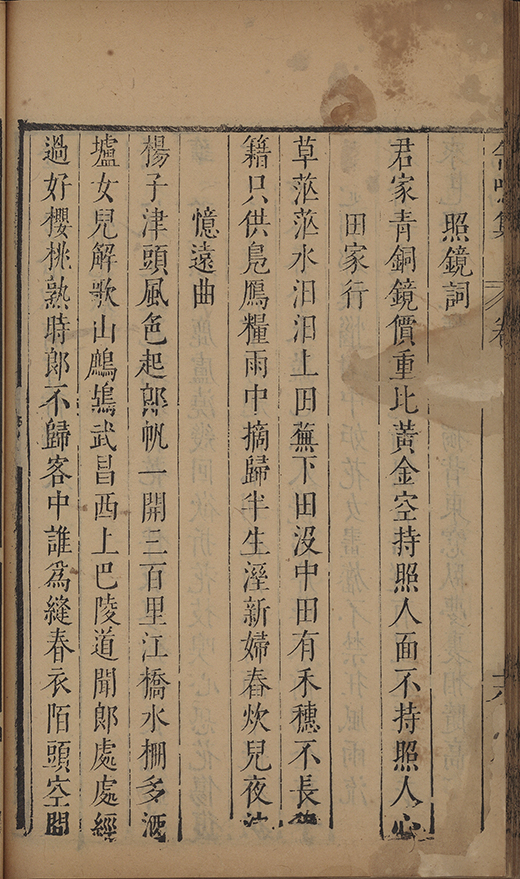 集 卷
照鏡詞
君家青銅鏡價重比黃金空持照人面不持照人心
田家行
草茫茫水汩汩上田蕪下田沒中田有禾穗不長
籍只供鳧鴈糧雨中摘歸半生溼新婦舂炊兒夜泣
憶遠曲
楊子津頭風色起郎帆一開三百里江橋水柵多酒
壚女兒解歌山鷓鴣武昌西上巴陵道聞郎處處經
過好櫻桃熟時郎不歸客中誰爲縫春衣陌頭空問